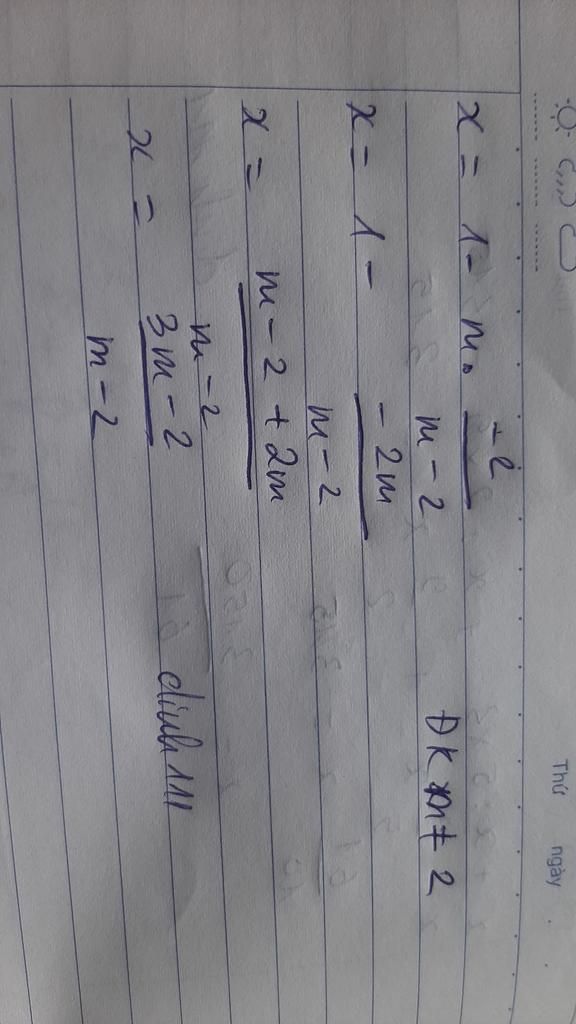 Thứ ngày
x = 1 - m. -2 / m - 2 ĐK m ≠ 2
x = 1 - -2m / m - 2
x = m - 2 + 2m / m - 2
x = 3m - 2 / m - 2